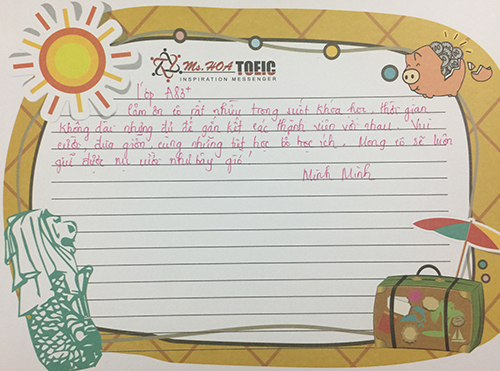 Ms.HOA TOEIC
INSPIRATION MESSENGER
Lớp A83+
Cảm ơn cô rất nhiều trong suốt khóa học, thời gian
không dài nhưng đủ để gắn kết các thành viên với nhau. Vui
cười, đùa giỡn, cùng những tiết học bổ học ích. Mong cô sẽ luôn
giữ được nụ cười như bây giờ!
Minh Minh